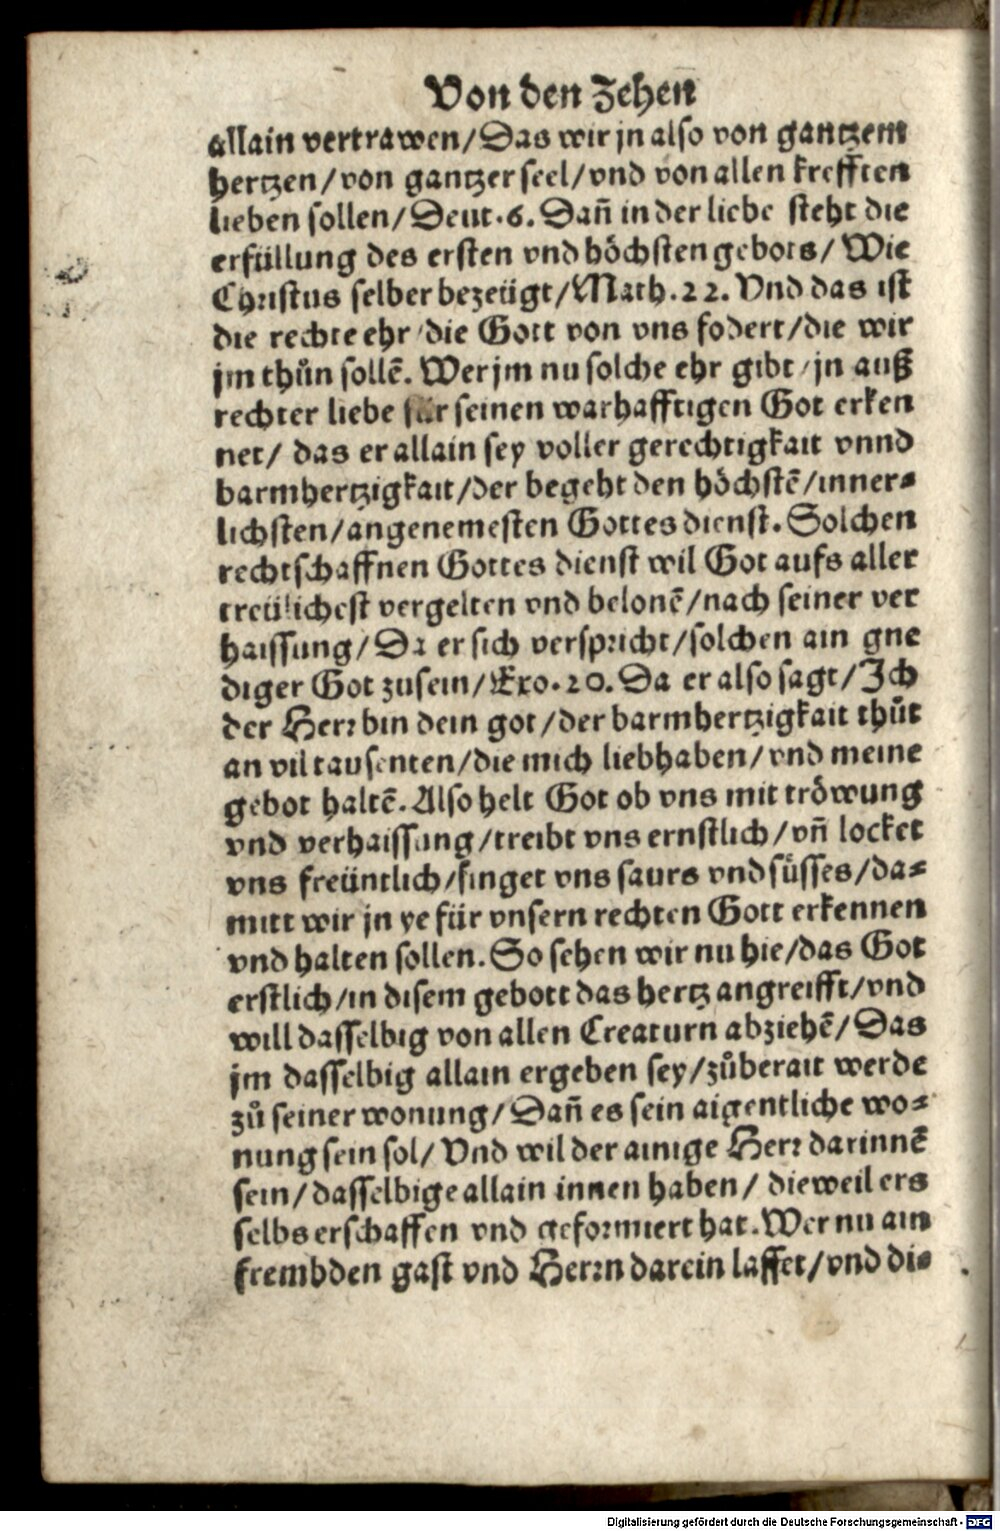 Von den Zehen
allain vertrawen/Das wir jn also von gantzem
hertzen/von gantzer seel/vnd von allen krefften
lieben sollen/Deut.6. Dañ in der liebe steht die
erfüllung des ersten vnd höchsten gebots/ Wie
Christus selber bezeügt/Math.22. Vnd das ist
die rechte ehr/die Gott von vns fodert/die wir
jm thůn sollẽ. Wer jm nu solche ehr gibt/jn auß
rechter liebe für seinen warhafftigen Got erken
net/ das er allain sey voller gerechtigkait vnnd
barmhertzigkait/der begeht den höchstẽ/inner-
lichsten/angenemesten Gottes dienst. Solchen
rechtschaffnen Gottes dienst wil Got aufs aller
treülichest vergelten vnd belonẽ/nach seiner ver
haissung/Da er sich verspricht/solchen ain gne
diger Got zusein/Exo.20. Da er also sagt/Ich
der Herr bin dein got/der barmhertzigkait thůt
an vil tausenten/die mich liebhaben/vnd meine
gebot haltẽ. Also helt Got ob vns mit tröwung
vnd verhaissung/treibt vns ernstlich/vñ locket
vns freüntlich/singet vns saurs vnd süsses/da-
mitt wir jn ye für vnsern rechten Gott erkennen
vnd halten sollen. So sehen wir nu hie/das Got
erstlich/in disem gebott das hertz angreifft/vnd
will dasselbig von allen Creaturn abziehẽ/Das
jm dasselbig allain ergeben sey/zůberait werde
zů seiner wonung/Dañ es sein aigentliche wo-
nung sein sol/ Vnd wil der ainige Herr darinnẽ
sein/dasselbige allain innen haben/ dieweil ers
selbs erschaffen vnd geformiert hat. Wer nu ain
frembden gast vnd Herrn darein lasset/vnd di-
Digitalisierung gefördert durch die Deutsche Forschungsgemeinschaft - DFG